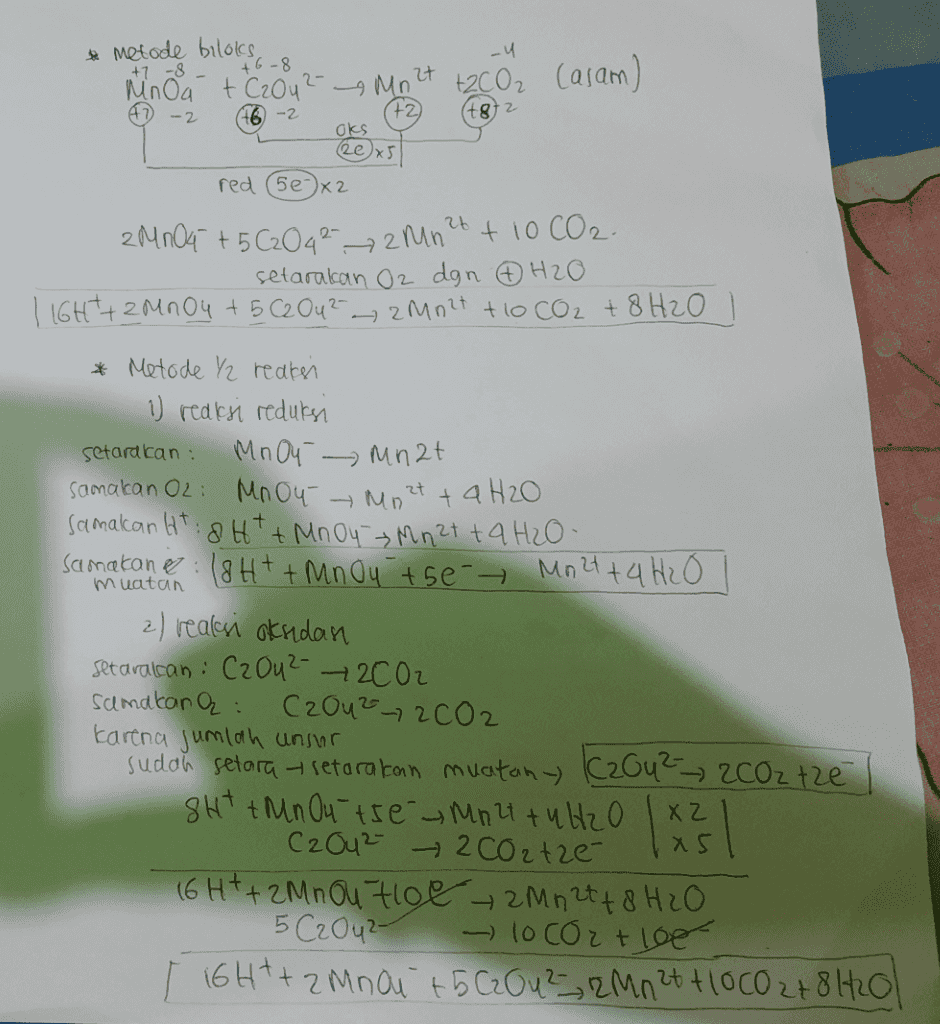 * metode biloks
+7 -8 +6 -8 -4
MnO4⁻ + C2O4²⁻ → Mn²⁺ + 2CO2 (asam)
+7 -2 +6 -2 +2 +8 -2
oks
2e x5
red 5e⁻ x2
2MnO4⁻ + 5C2O4²⁻ → 2Mn²⁺ + 10 CO2.
setarakan O2 dgn + H2O
16H⁺ + 2MnO4 + 5C2O4²⁻ → 2Mn²⁺ + 10 CO2 + 8H2O
* Metode 1/2 reaksi
1) reaksi reduksi
setarakan : MnO4⁻ → Mn2+
samakan O2 : MnO4⁻ → Mn²⁺ + 4H2O
samakan H⁺ : 8H⁺ + MnO4⁻ → Mn2+ + 4H2O.
samakan e⁻ : 8H⁺ + MnO4⁻ + 5e⁻ → Mn²⁺ + 4H2O
muatan
2) reaksi oksidasi
setarakan : C2O4²⁻ → 2CO2
samakan O2 : C2O4²⁻ → 2CO2
karena jumlah unsur
sudah setara → setarakan muatan → C2O4²⁻ → 2CO2 + 2e⁻
8H⁺ + MnO4⁻ + 5e⁻ → Mn2+ + 4H2O | x2 |
C2O4²⁻ → 2CO2 + 2e⁻ | x5 |
16H⁺ + 2MnO4⁻ + 10e⁻ → 2Mn²⁺ + 8H2O
5C2O4²⁻ → 10CO2 + 10e⁻
16H⁺ + 2MnO4⁻ + 5C2O4²⁻ → 2Mn²⁺ + 10CO2 + 8H2O